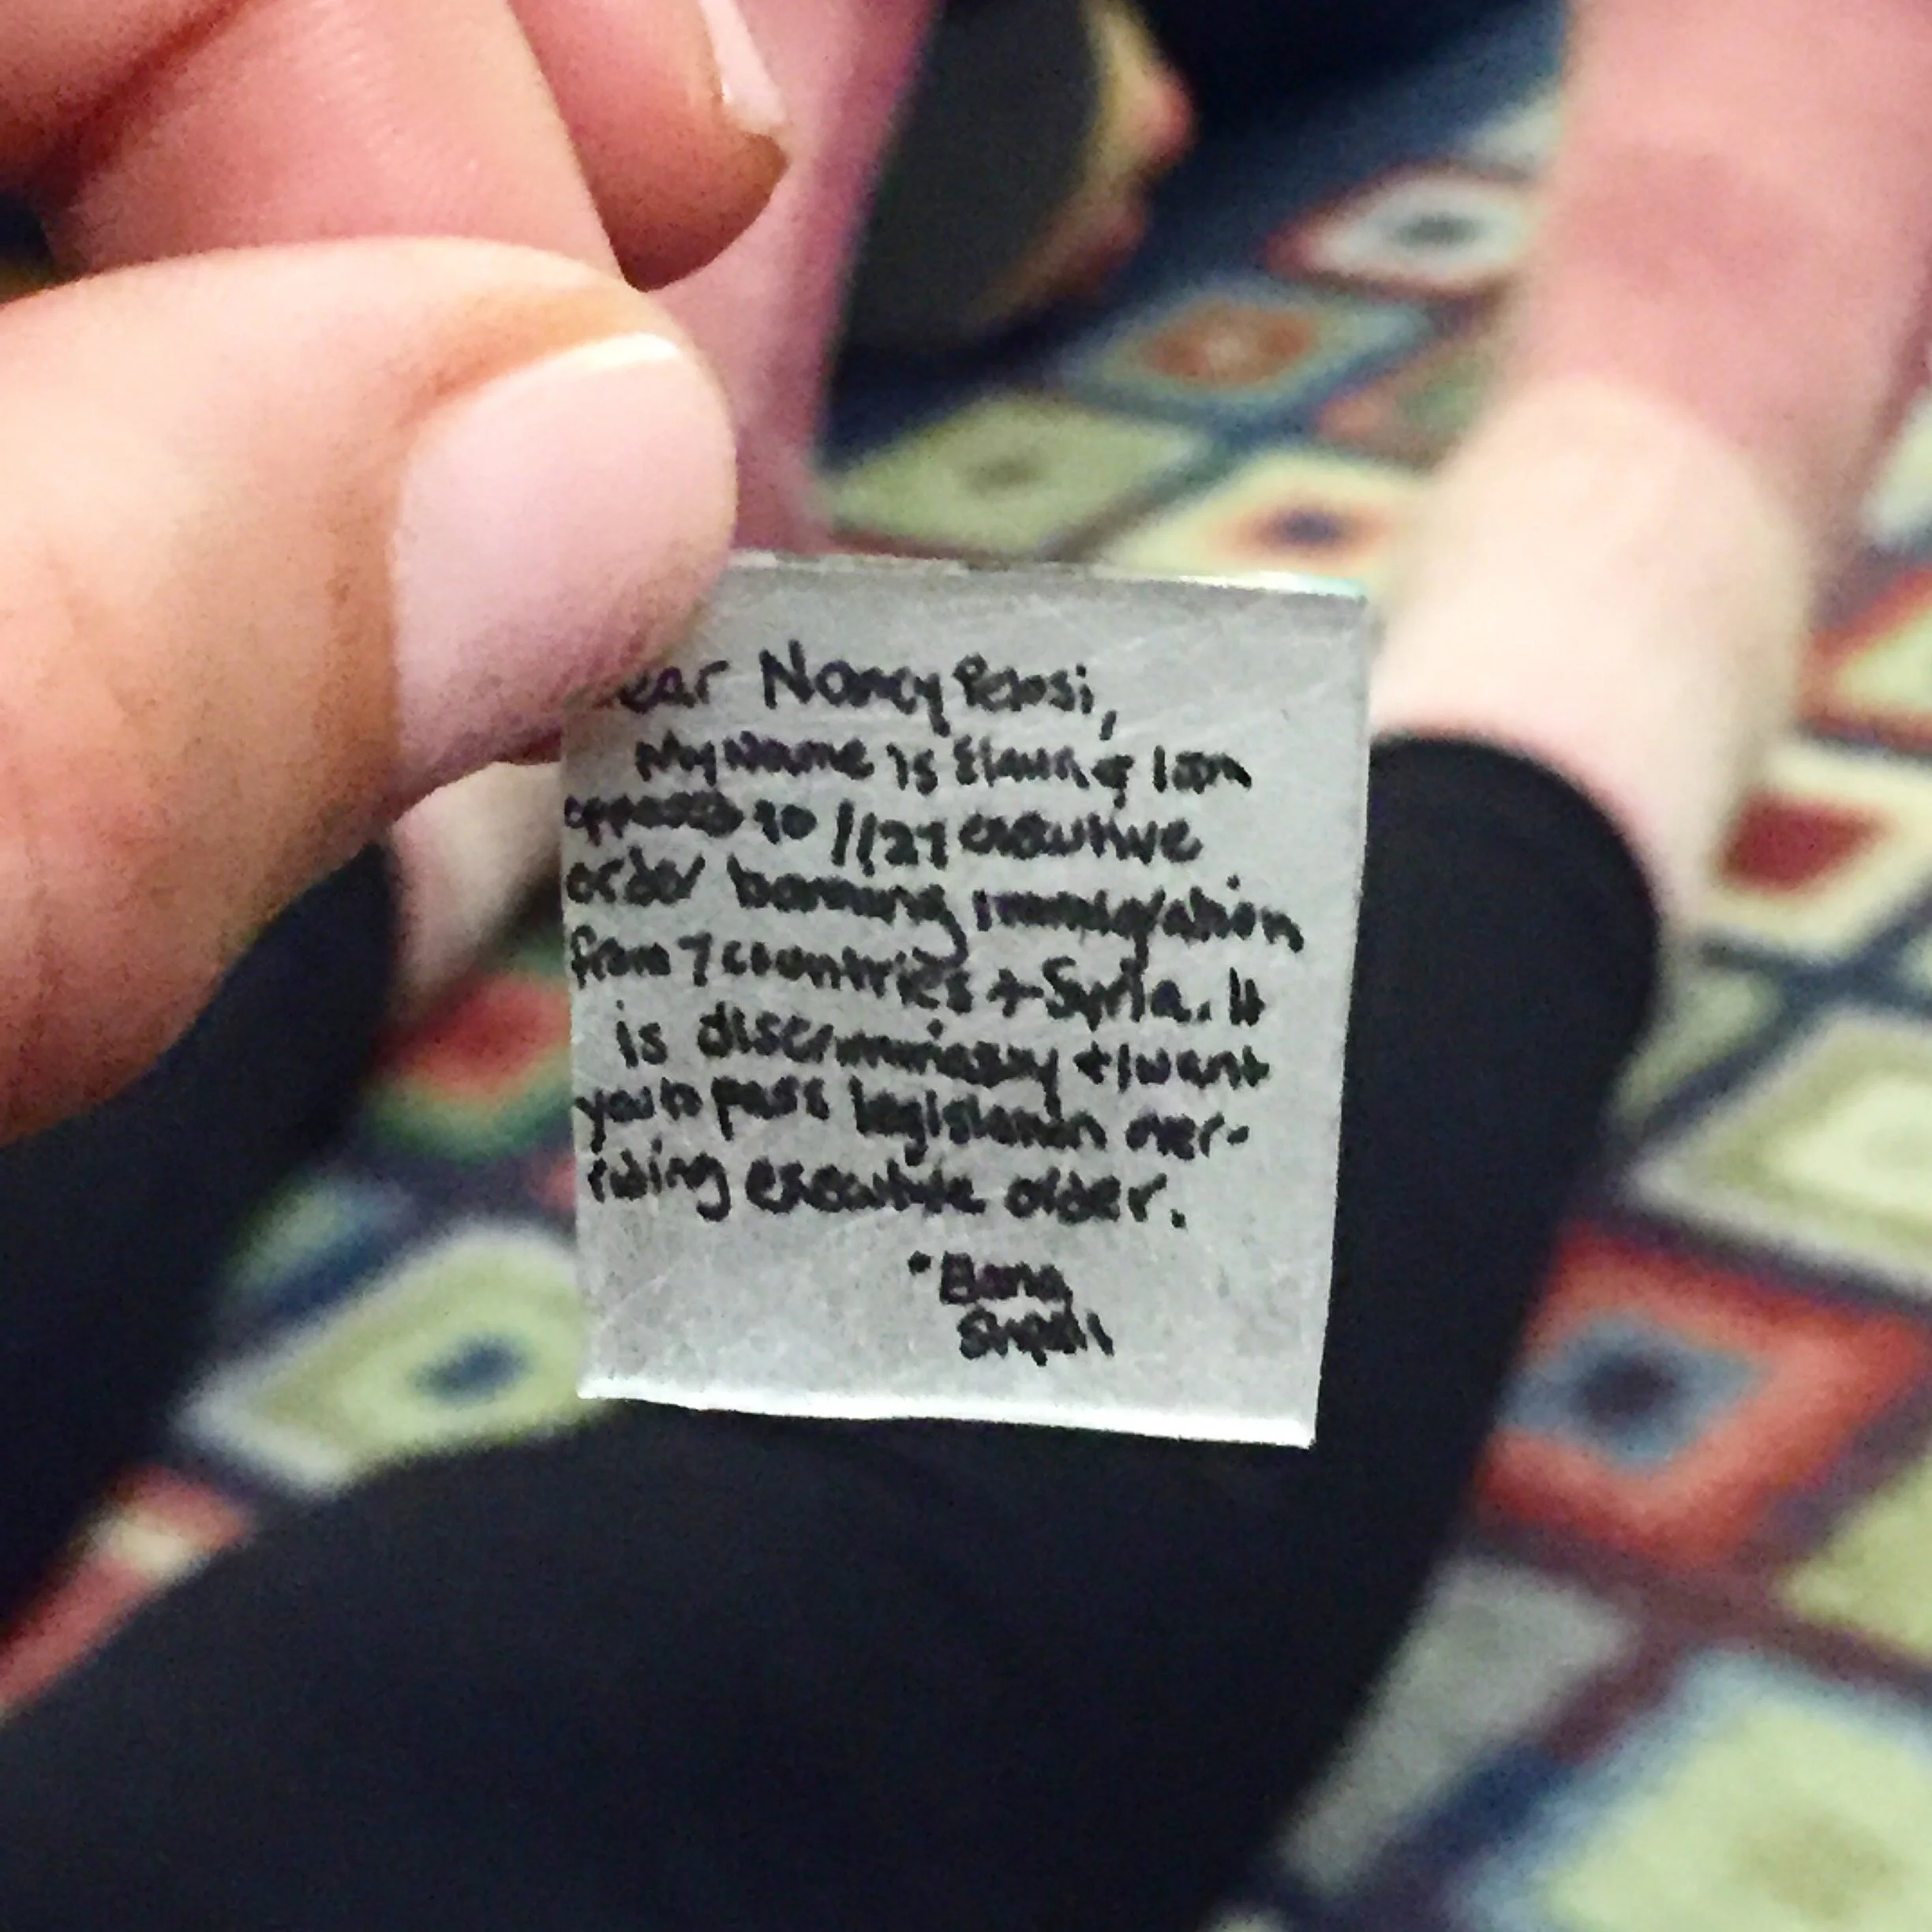 ear Nancy Pelosi,
My Name is & I am
opposed to 1/27 executive
order banning immigration
from 7 countries + Syria. It
is discriminatory + I want
you to pass legislation over-
riding executive order.